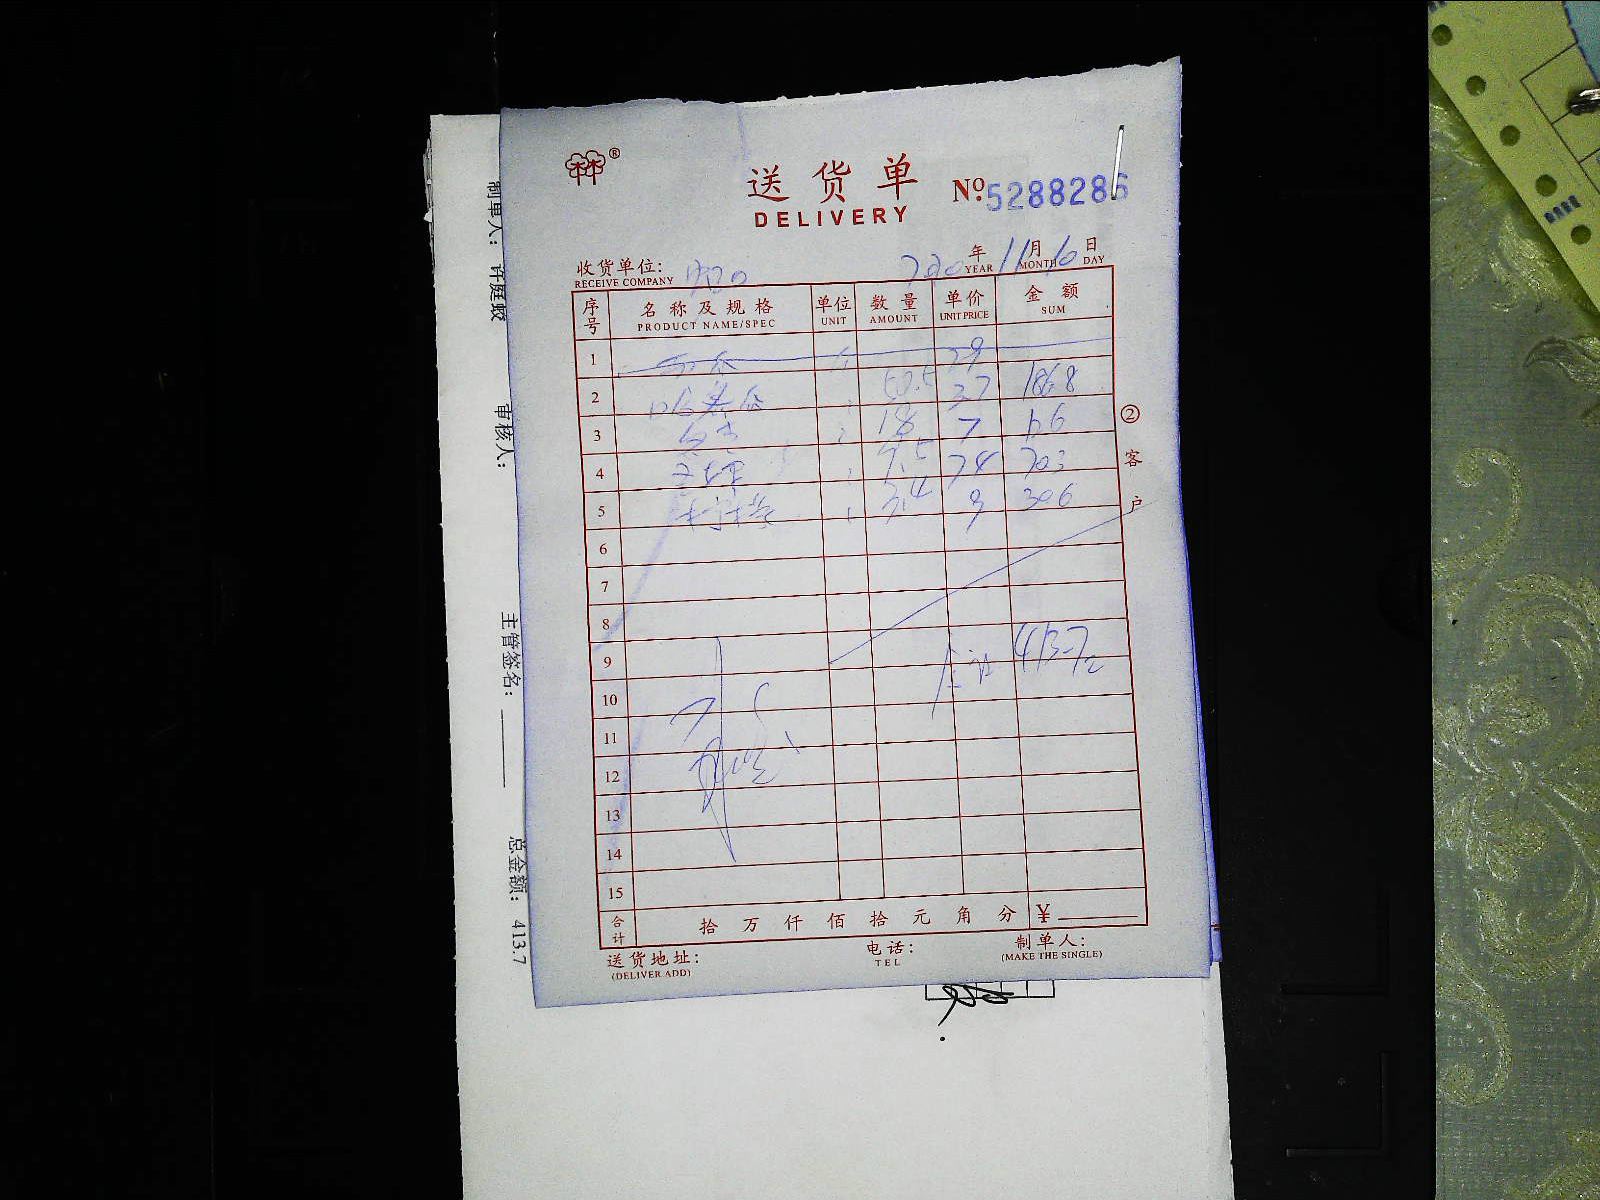 ®
送货单
DELIVERY
Nº 5288286
收货单位:
RECEIVE COMPANY
年 11 月 10 日
YEAR MONTH DAY
序号 名称及规格 单位 数量 单价 金额
PRODUCT NAME/SPEC UNIT AMOUNT UNIT PRICE SUM
1
2 50.5 3.7 186.8
3 18 7 126
4 9.5 7.4 70.3
5 3.4 9 30.6
6
7
8
9 413.7
10
11
12
13
14
15
合计 拾 万 仟 佰 拾 元 角 分 ¥
送货地址:
(DELIVER ADD)
电话:
TEL
制单人:
(MAKE THE SINGLE)
② 客户
制单人: 许庭蛟 审核人: 主管签名: 总金额: 413.7